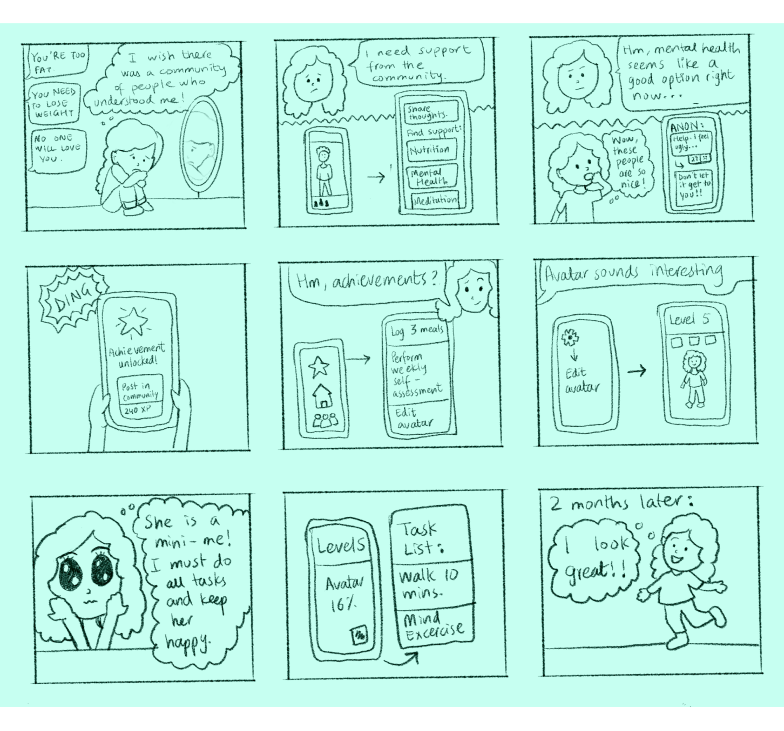 YOU'RE TOO
FAT
YOU NEED
TO LOSE
WEIGHT
NO ONE
WILL LOVE
YOU.
I wish there
was a community
of people who
understood me!
I need support
from the
community.
Share
thoughts.
Find support:
Nutrition
Mental
Health
Meditation
Hm, mental health
seems like a
good option right
now...
Wow,
these
people
are so
nice!
ANON:
Help. I feel
ugly...
Don't let
it get to
you!!
DING
Achievement
unlocked!
Post in
community
240 XP
Hm, achievements?
Log 3 meals
Perform
weekly
self-
assessment
Edit
avatar
Avatar sounds interesting
Edit
avatar
Level 5
She is a
mini-me!
I must do
all tasks
and keep
her
happy.
Level 5
Avatar
16%
Task
List:
Walk 10
mins.
Mind
Excercise
2 months later:
I look
great!!